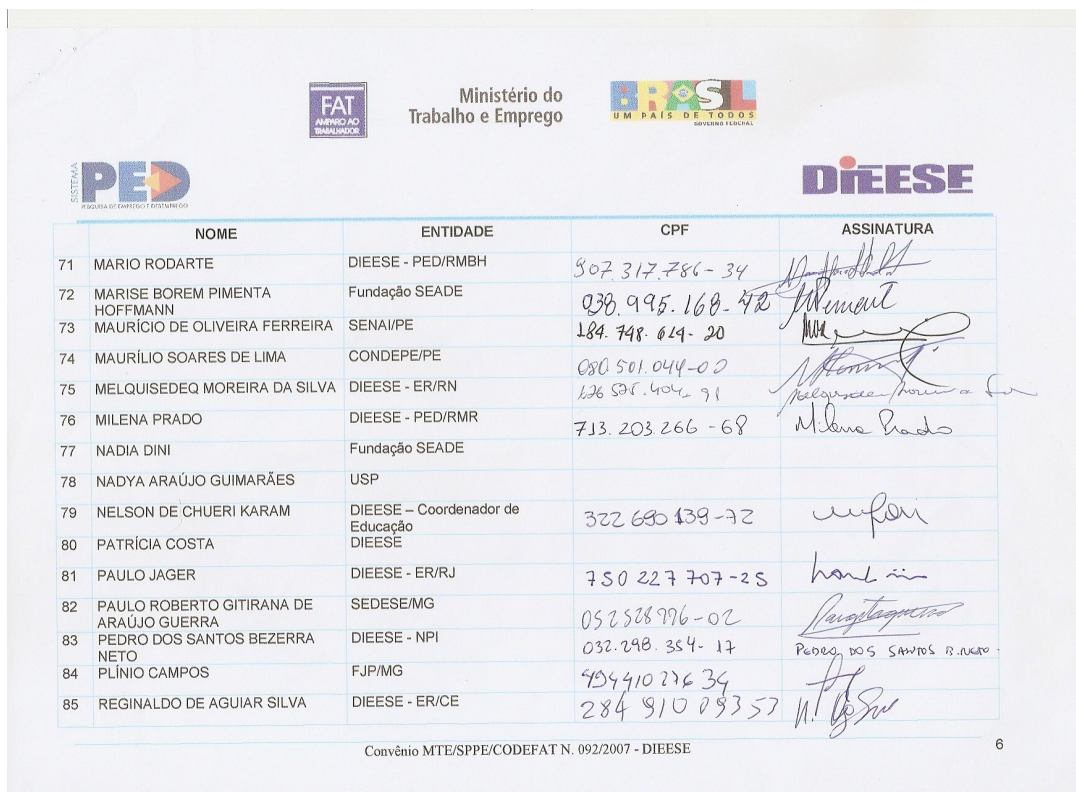 FAT
AMPARO AO
TRABALHADOR
Ministério do
Trabalho e Emprego
BRASIL
UM PAÍS DE TODOS
GOVERNO FEDERAL
SISTEMA
PED
PESQUISA DE EMPREGO E DESEMPREGO
DIEESE
NOME ENTIDADE CPF ASSINATURA
71 MARIO RODARTE DIEESE - PED/RMBH 907.317.786-34
72 MARISE BOREM PIMENTA Fundação SEADE 938.995.168-72
HOFFMANN
73 MAURÍCIO DE OLIVEIRA FERREIRA SENAI/PE 184.748.614-20
74 MAURÍLIO SOARES DE LIMA CONDEPE/PE 080.501.044-00
75 MELQUISEDEQ MOREIRA DA SILVA DIEESE - ER/RN
76 MILENA PRADO DIEESE - PED/RMR 713.203.266-68 Milena Prado
77 NADIA DINI Fundação SEADE
78 NADYA ARAÚJO GUIMARÃES USP
79 NELSON DE CHUERI KARAM DIEESE – Coordenador de 322 690 139-72
Educação
80 PATRÍCIA COSTA DIEESE
81 PAULO JAGER DIEESE - ER/RJ 750 227 707-25
82 PAULO ROBERTO GITIRANA DE SEDESE/MG
ARAÚJO GUERRA
83 PEDRO DOS SANTOS BEZERRA DIEESE - NPI 032.298.354-17 PEDRO DOS SANTOS B. NETO
NETO
84 PLÍNIO CAMPOS FJP/MG
85 REGINALDO DE AGUIAR SILVA DIEESE - ER/CE 284 910 093 53
Convênio MTE/SPPE/CODEFAT N. 092/2007 - DIEESE
6